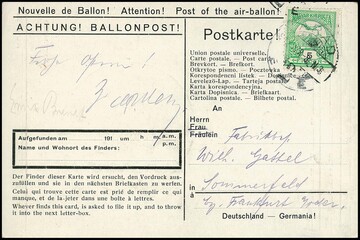 Nouvelle de Ballon! Attention! Post of the air-ballon!
ACHTUNG! BALLONPOST!
Aufgefunden am 191 um h m/a.m.
p.m.
Name und Wohnort des Finders:
Der Finder dieser Karte wird ersucht, den Vordruck aus-
zufüllen und sie in den nächsten Briefkasten zu werfen.
Celui qui trouve cette carte est prié de remplir ce qui
manque, et de la-jeter dans une boîte à lettres.
Whoever finds this card, is asked to file it up, and to throw
it into the next Letter-box.
Postkarte!
Union postale universelle.
Carte postale. – Post card
Brevkort. – Brefkort.
Otkrytoe pismo. – Pocztowka
Korespondencni listek. – Dopisnice
Levelező-Lap. – Tarjeta postal
Karta korespondencyjna.
Karta Dopisnica. – Briefkaart
Cartolina postale. – Bilhete postal
An
Herrn
Frau
Fräulein
Fabrikbes.
Wilh.
Sommerfeld
Bz. Frankfurt Oder
Deutschland – Germania!